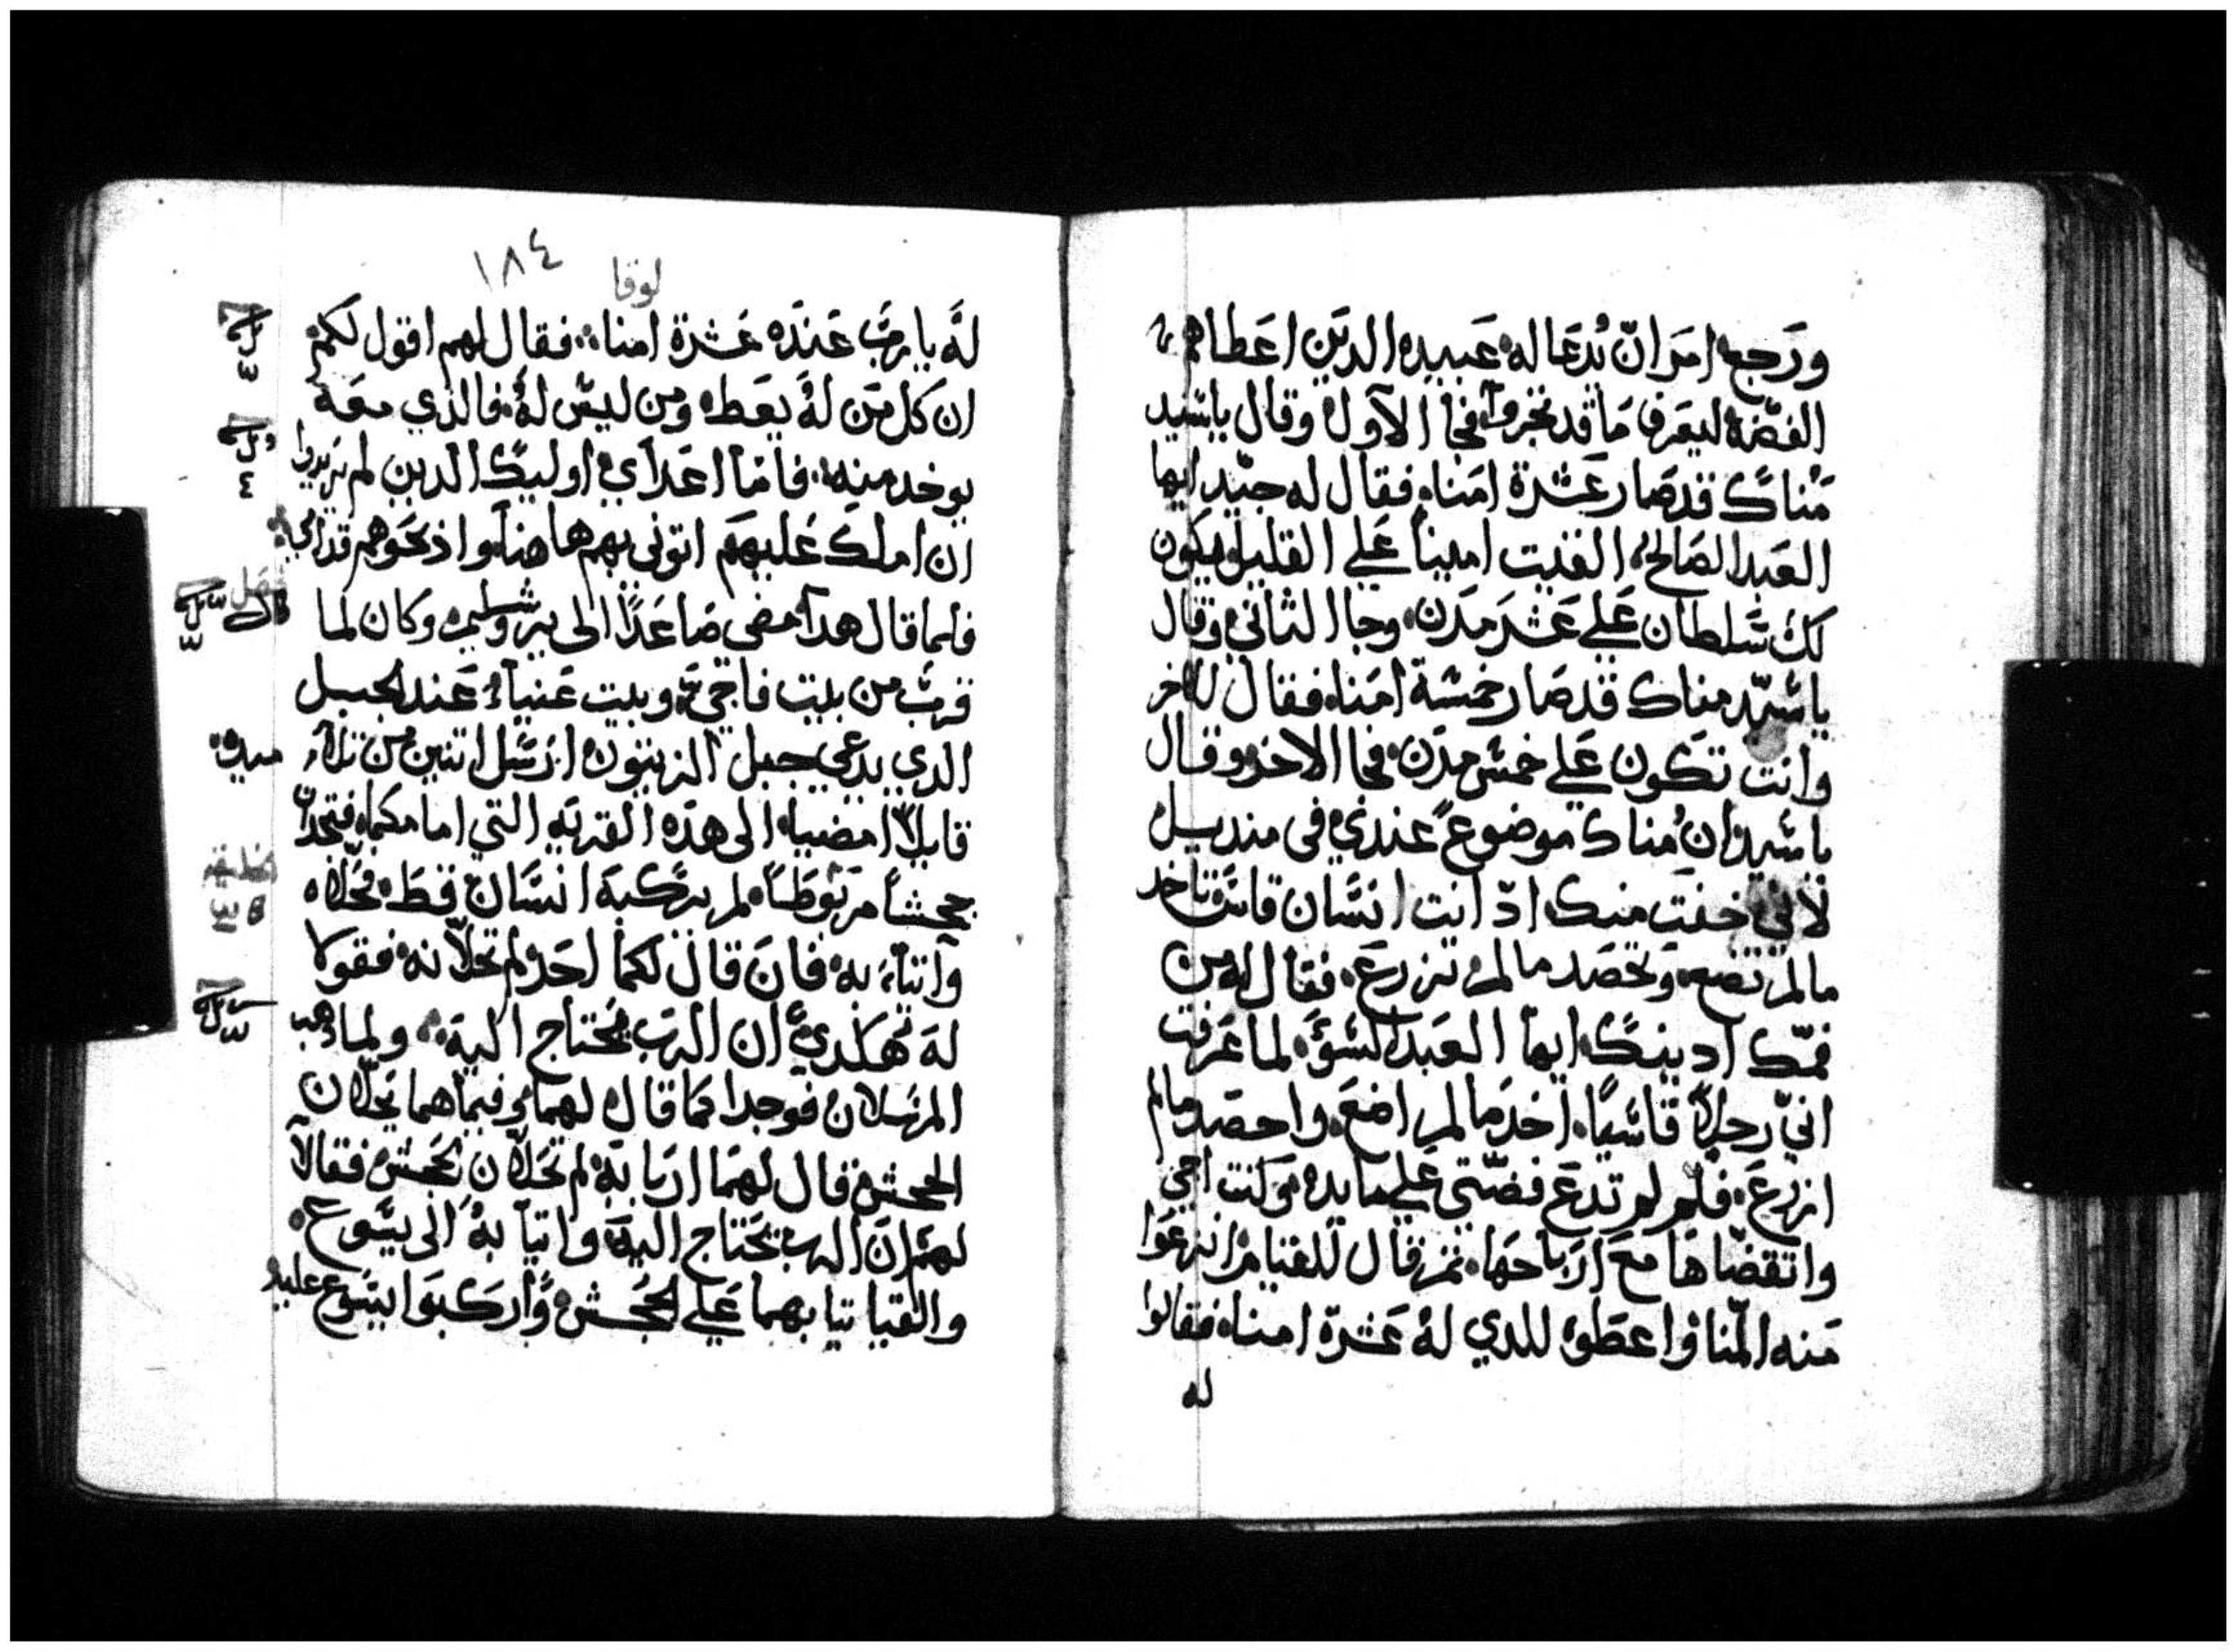 ورجع امر ان تدعا له عبيده الدين اعطاهم
الفضه ليعرف ما قد تجروا فجا الاول وقال ياسيد
مناك قد صار عشرة امناه فقال له جيد ايها
العبد الصالح الفيت امينا علي القليل يكون
لك سلطان علي عشر مدن وجا الثاني وقال
ياسيد مناك قد صار خمسة امناه فقال للاخر
وانت تكون علي خمس مدن فجا الاخر وقال
ياسيد ان مناك موضوع عندي في منديل
لاني خفت منك اد انت انسان قاسي تاخد
مالم تضع وتحصد مالم تزرع فقال له من
فمك ادينك ايها العبد السؤ لما عرفت
اني رجلا قاسيا اخد مالم اضع واحصد مالم
ازرع فلم لم تدع فضتي علي مايده وكنت اجي
واتقضاها مع ارباحها ثم قال للقيام انزعوا
منه المنا واعطوه للدي له عشرة امناه فقالوا
له
لوقا
١٨٤
له يا رب عنده عشرة امنا فقال لهم اقول لكم
ان كل من له يعطه ومن ليس له فالذي معه
يوخد منه فاما اعداي اوليك الدين لم يريدوا
ان املك عليهم اتوني بهم هاهنا واذبحوهم قدامي
فلما قال هدا مضي صاعدا الى يروشليم وكان لما
قرب من بيت فاجي وبيت عنيا عند الجبل
الدي يدعي جبل الزيتون ارسل اتنين من تلا
ميده
قايلا امضيا الى هذه القريه التي امامكما فتجدان
جحشا مربوطا لم يركبه انسان قط فحلاه
واتيا به فان قال لكما احد لم تحلانه فقولا
له هكدي ان الرب يحتاج اليه ولما دهب
المرسلان فوجدا كما قال لهما وفيما هما يحلان
الجحش قال لهما اربابه لم تحلان الجحش فقالا
لهم ان الرب يحتاج اليه واتيا به الى يسوع
والقيا تيابهما علي الجحش واركبوا يسوع عليه